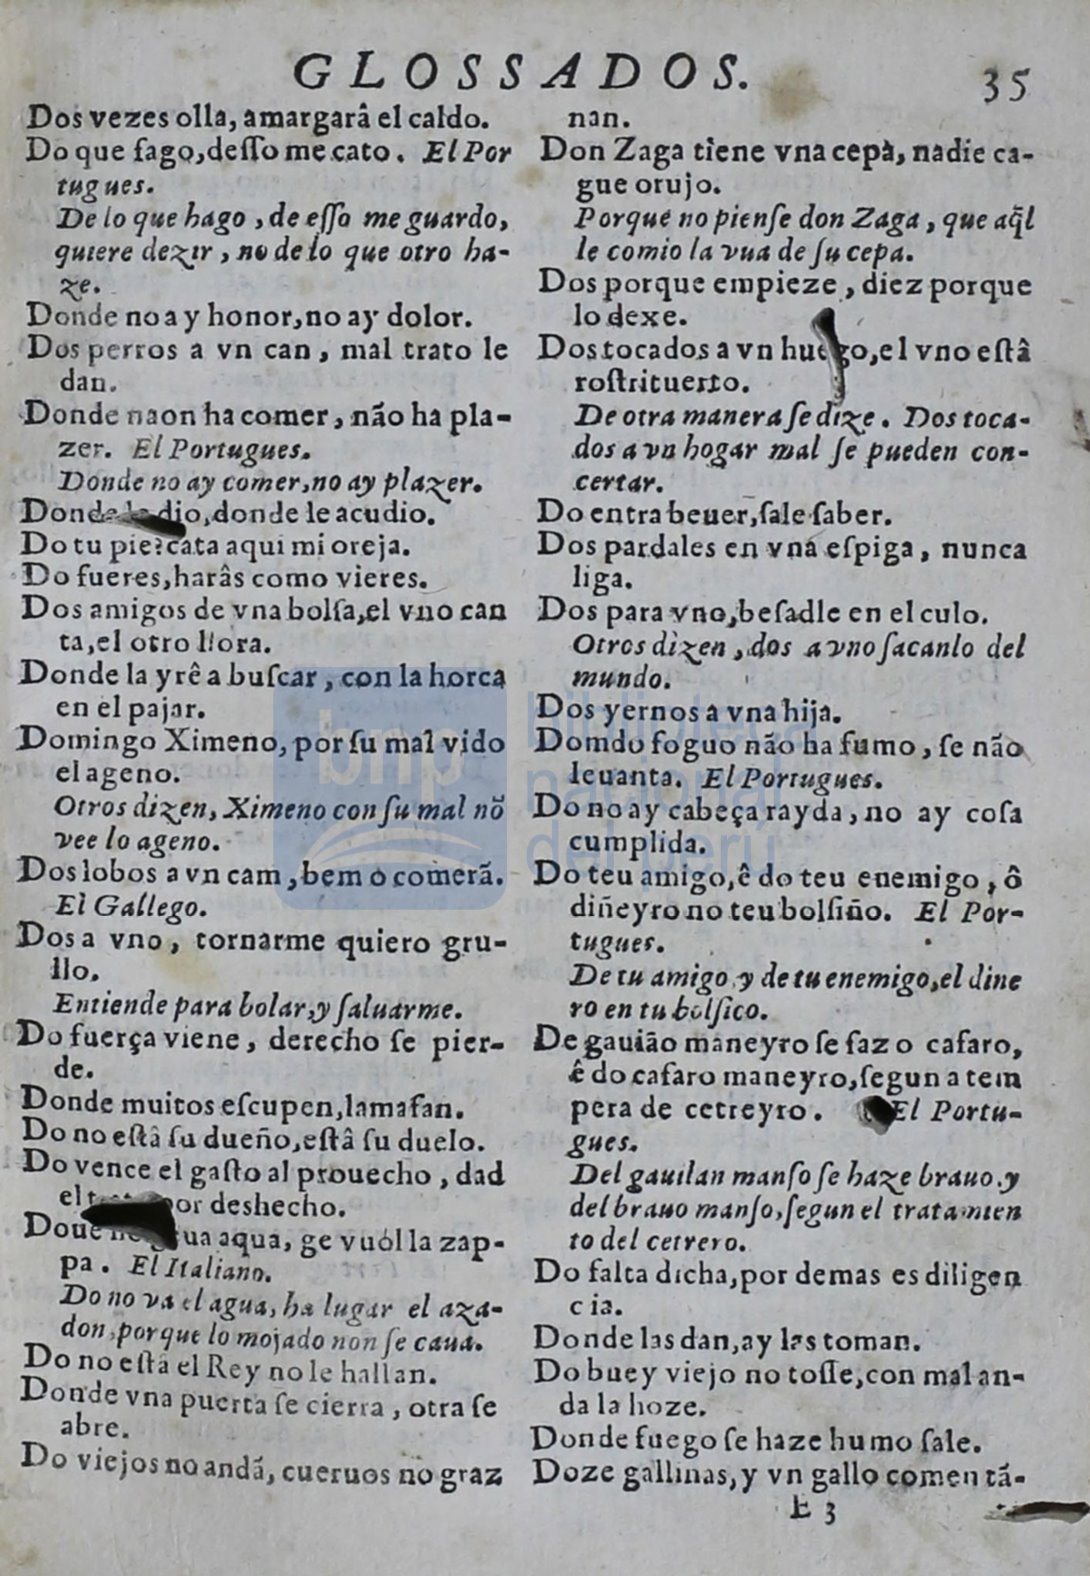 GLOSSADOS. 35
Dos vezes olla, amargarâ el caldo.
Do que fago, desſo me cato. El Por
tugues.
De lo que hago, de eſſo me guardo,
quiere dezir, no de lo que otro ha-
ze.
Donde no ay honor, no ay dolor.
Dos perros a vn can, mal trato le
dan.
Donde naon ha comer, não ha pla-
zer. El Portugues.
Donde no ay comer, no ay plazer.
Donde dio, donde le acudio.
Do tu pie? cata aqui mi oreja.
Do fueres, harâs como vieres.
Dos amigos de vna bolſa, el vno can
ta, el otro llora.
Donde la yrê a buſcar, con la horca
en el pajar.
Domingo Ximeno, por ſu mal vido
el ageno.
Otros dizen, Ximeno con ſu mal nõ
vee lo ageno.
Dos lobos a vn cam, bem o comerã.
El Gallego.
Dos a vno, tornarme quiero gru-
llo.
Entiende para bolar, y ſaluarme.
Do fuerça viene, derecho ſe pier-
de.
Donde muitos eſcupen, lama fan.
Do no eſtâ ſu dueño, eſtâ ſu duelo.
Do vence el gaſto al prouecho, dad
el por deshecho.
Doue aqua, ge vuól la zap-
pa. El Italiano.
Do no va el agua, ha lugar el aza-
don, porque lo mojado non ſe caua.
Do no eſtâ el Rey no le hallan.
Donde vna puerta ſe cierra, otra ſe
abre.
Do viejos no andã, cueruos no graz
nan.
Don Zaga tiene vna cepa, nadie ca-
gue orujo.
Porque no pienſe don Zaga, que aq̃l
le comio la vua de ſu cepa.
Dos porque empieze, diez porque
lo dexe.
Dos tocados a vn huego, el vno eſtâ
roſtrituerto.
De otra manera ſe dize. Dos toca-
dos a vn hogar mal ſe pueden con-
certar.
Do entra beuer, ſale ſaber.
Dos pardales en vna eſpiga, nunca
liga.
Dos para vno, beſadle en el culo.
Otros dizen, dos a vno ſacanlo del
mundo.
Dos yernos a vna hija.
Domdo foguo não ha fumo, ſe não
leuanta. El Portugues.
Do no ay cabeça rayda, no ay coſa
cumplida.
Do teu amigo, ê do teu enemigo, ô
diñeyro no teu bolſiño. El Por-
tugues.
De tu amigo y de tu enemigo, el dine
ro en tu bolſico.
De gauião maneyro ſe faz o cafaro,
ê do cafaro maneyro, ſegun a tem
pera de cetreyro. El Portu-
gues.
Del gauilan manſo ſe haze brauo, y
del brauo manſo, ſegun el tratamien
to del cetrero.
Do falta dicha, por demas es diligen
cia.
Donde las dan, ay las toman.
Do buey viejo no toſſe, con mal an-
da la hoze.
Donde fuego ſe haze humo ſale.
Doze gallinas, y vn gallo comen tã-
E 3
bnp
biblioteca
nacional
del perú